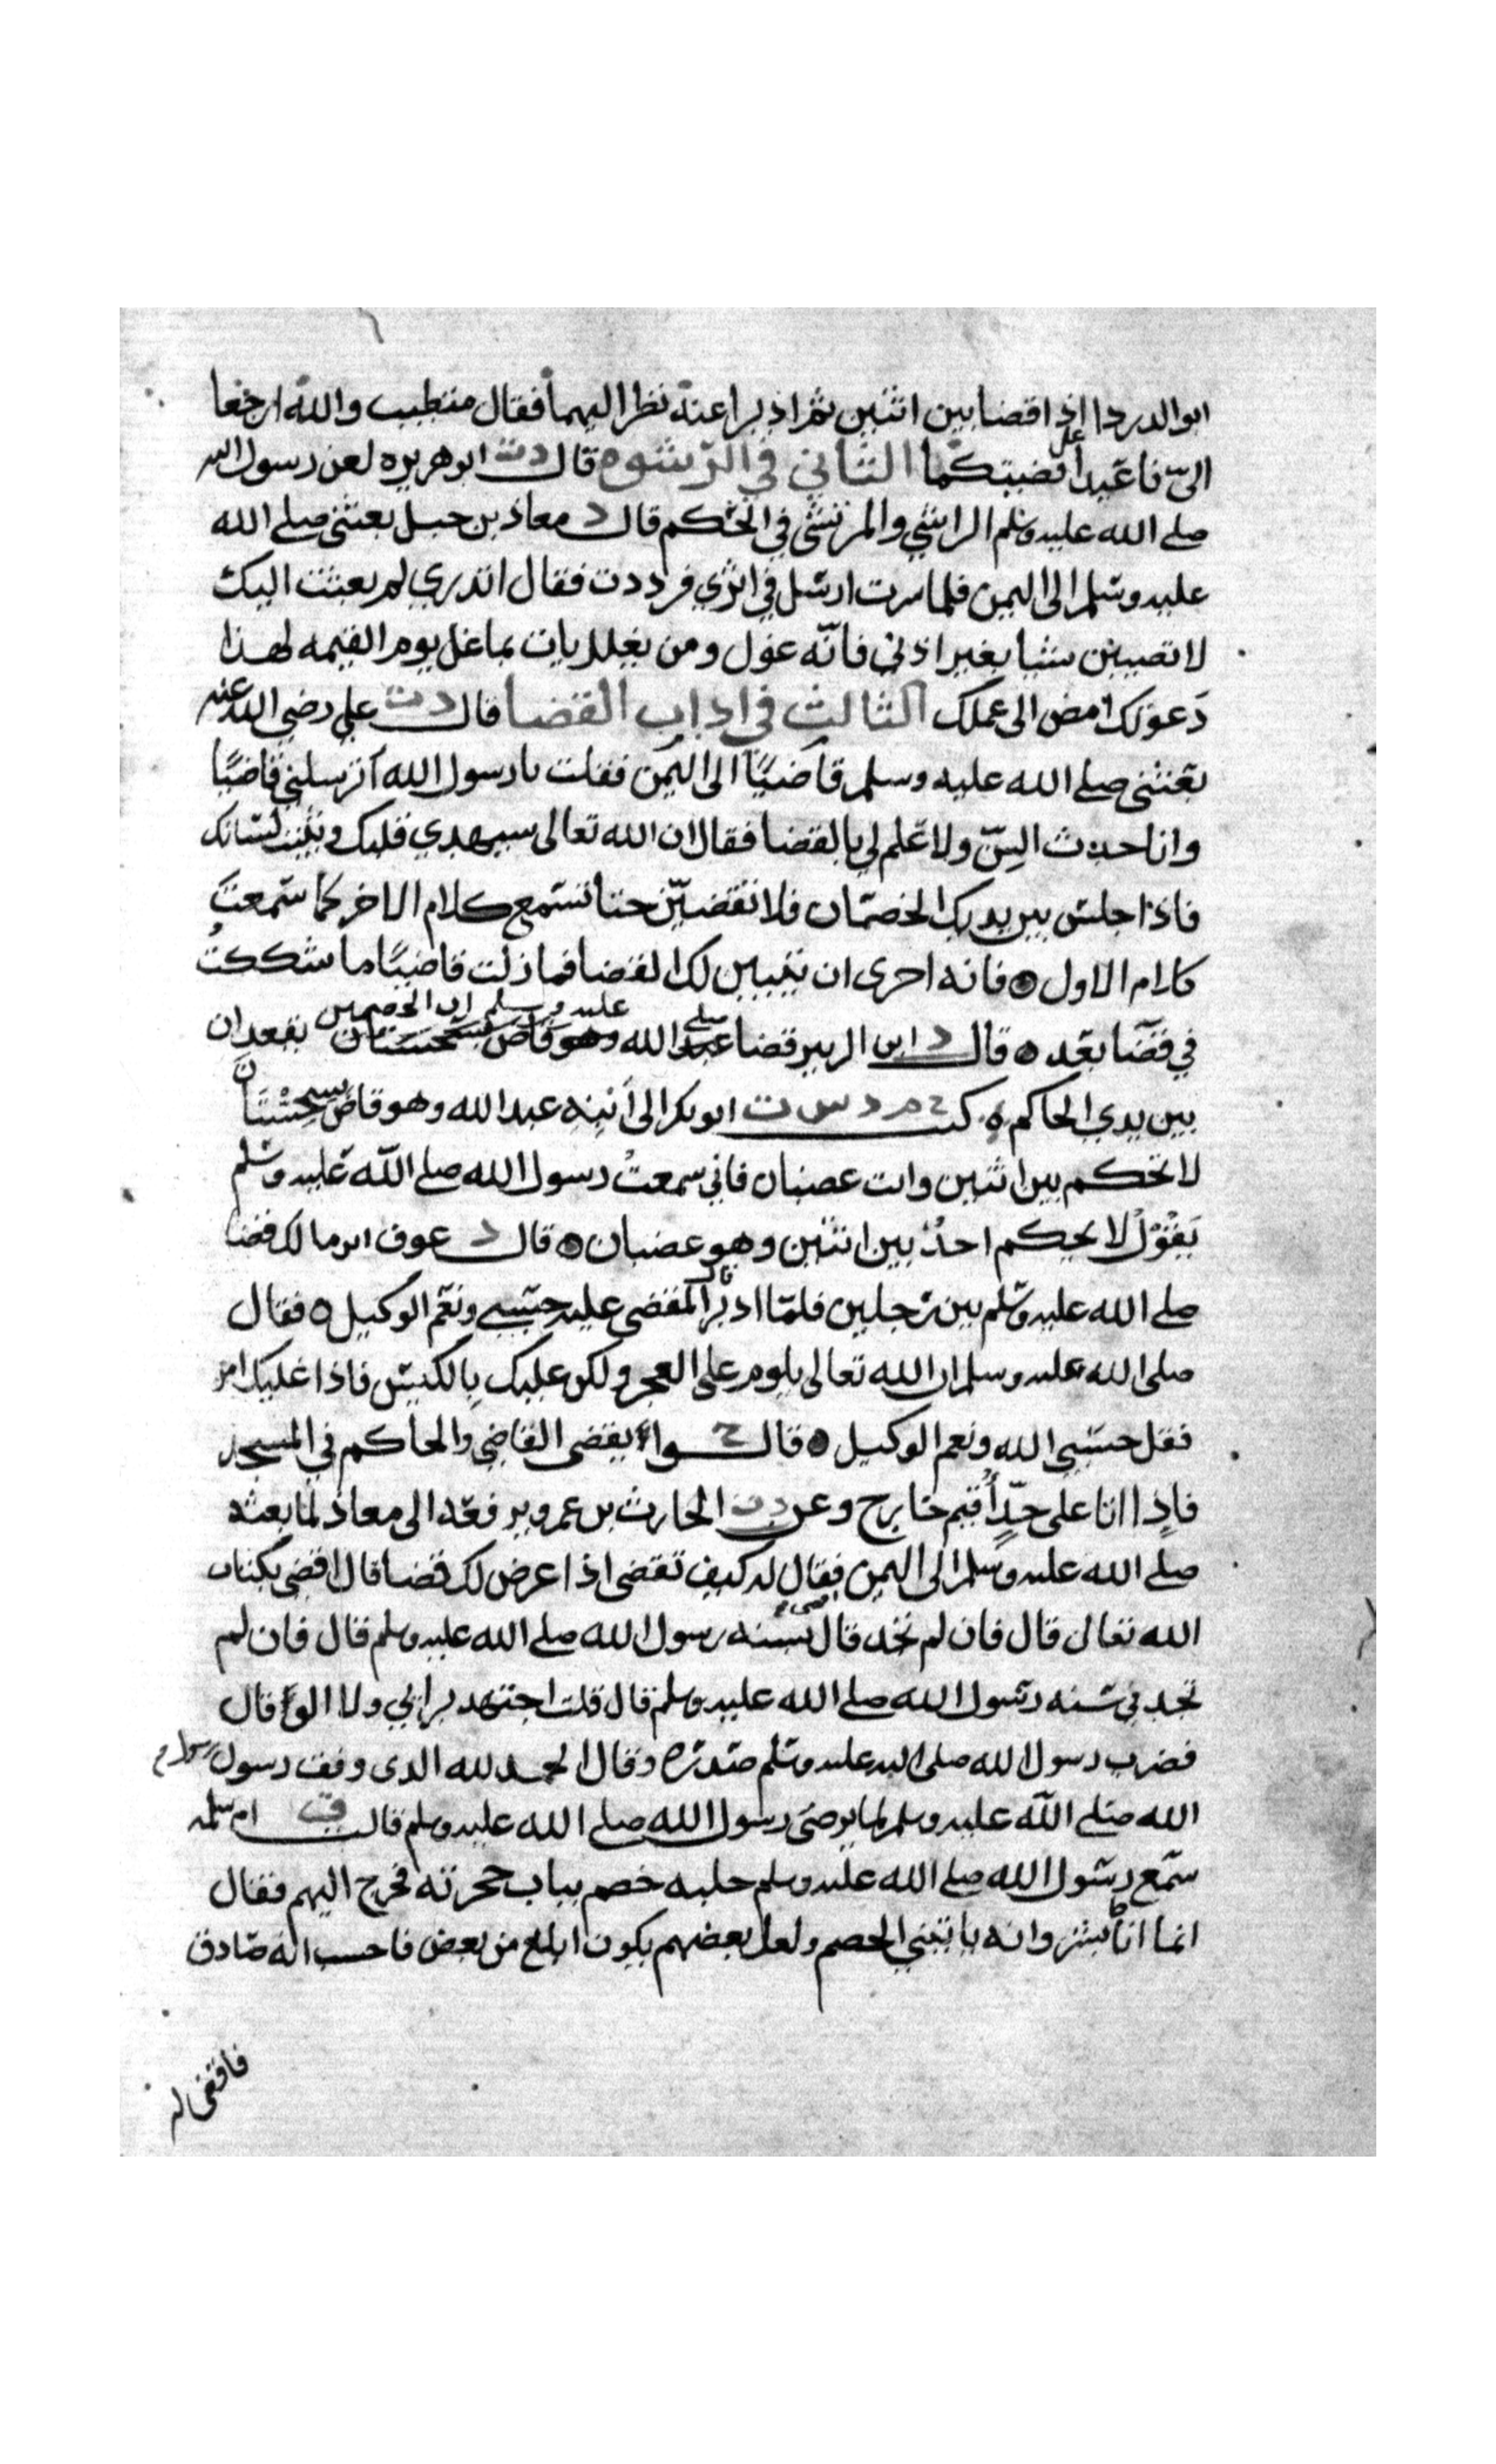 ابو الدردا اذا قضا بين اثنين ثم ادبرا عنه نظر اليهما فقال متطبب والله ارجعا
الىّ فاعيدا علىّ قضيتكما الثاني في الرشوه قال د ت ابو هريره لعن رسول الله
صلى الله عليه وسلم الراشي والمرتشي في الحكم قال د معاذ بن جبل بعثني صلى الله
عليه وسلم الى اليمن فلما سرت ارسل في اثري فرددت فقال اتدري لم بعثت اليك
لا تصيبن شيا بغير اذني فانه غلول ومن يغلل يات بما غل يوم القيمه لهذا
دعوتك امض الى عملك الثالث في اداب القضا قال د ت علي رضي الله عنه
بعثني صلى الله عليه وسلم قاضيًا الى اليمن فقلت يا رسول الله اترسلني قاضيًا
وانا حدث السِنّ ولا علم لي بالقضا فقال ان الله تعالى سيهدي قلبك ويثبت لسانك
فاذا جلس بين يديك الخصمان فلا تقضينّ حتا تسمع كلام الاخر كما سمعت
كلام الاول ه فانه احرى ان يتبين لك القضا فما زلت قاضيًا ما شككتُ
في قضا بعد ه قال د ابن الزبير قضا صلى الله عليه وسلم ان الخصمين يقعدان
بين يدي الحاكم ه كتب خ م د س ت ابو بكر الى ابنه عبد الله وهو قاض بسجستان
لا تحكم بين اثنين وانت غضبان فاني سمعتُ رسول الله صلى الله عليه وسلم
يقول لا يحكم احدٌ بين اثنين وهو غضبان ه قال د عوف ابن مالك قضا
صلى الله عليه وسلم بين رجلين فلما ادبر المقضى عليه قال حسبي ونعم الوكيل ه فقال
صلى الله عليه وسلم ان الله تعالى يلوم على العجز ولكن عليك بالكيس فاذا غلبك امر
فقل حسبي الله ونعم الوكيل ه قالوا خ يقضى القاضي والحاكم في المسجد
فاذا اتا على حدٍّ اُقيم خارج وعن د ت الحارث بن عمرو يرفعه الى معاذ لما بعثه
صلى الله عليه وسلم الى اليمن فقال له كيف تقضى اذا عرض لك قضا قال اقضى بكتاب
الله تعالى قال فان لم تجد قال بسنه رسول الله صلى الله عليه وسلم قال فان لم
تجد في سنه رسول الله صلى الله عليه وسلم قال قلت اجتهد برايي ولا الو قال
فضرب رسول الله صلى الله عليه وسلم صدره وقال الحمد لله الدى وفق رسول رسول
الله صلى الله عليه وسلم لما يرضى رسول الله صلى الله عليه وسلم قالت ام سلمه
سمع رسول الله صلى الله عليه وسلم جلبه خصم بباب حجرته فخرج اليهم فقال
انما انا بشر وانه ياتيني الخصم ولعل بعضهم يكون ابلغ من بعض فاحسب انه صادق
فاقضى له